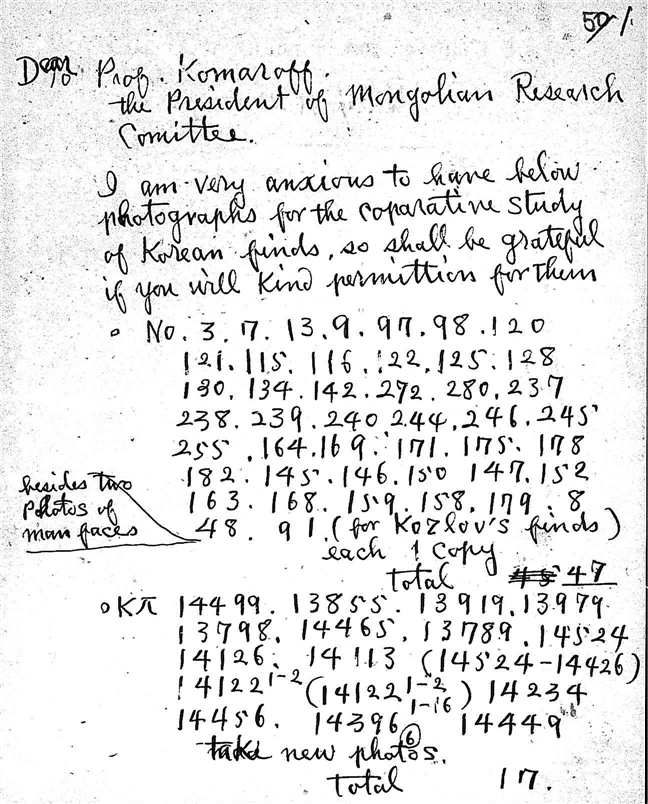 50/1.
Dear Prof. Komaroff.
the President of Mongolian Research
Comittee.
I am very anxious to have below
photographs for the coparative study
of Korean finds, so shall be grateful
if you will kind permittion for them
No. 3. 7. 13. 9. 97. 98. 120
121. 115. 116. 122. 125. 128
130. 134. 142. 272. 280. 237
238. 239. 240 244. 246. 245
255. 164. 169. 171. 175. 178
182. 145. 146. 150 147. 152
163. 168. 159. 158. 179. 8
48. 91. (for Kozlov's finds)
besides two
photos of
man faces
each 1 copy
total 45 47
Kπ 14499. 13855. 13919. 13979
13798. 14465. 13789. 14524
14126. 14113 (14524-14426)
14122 1-2 (14122 1-2 1-16) 14234
14456. 14396 14449
6
take new photos.
total 17.